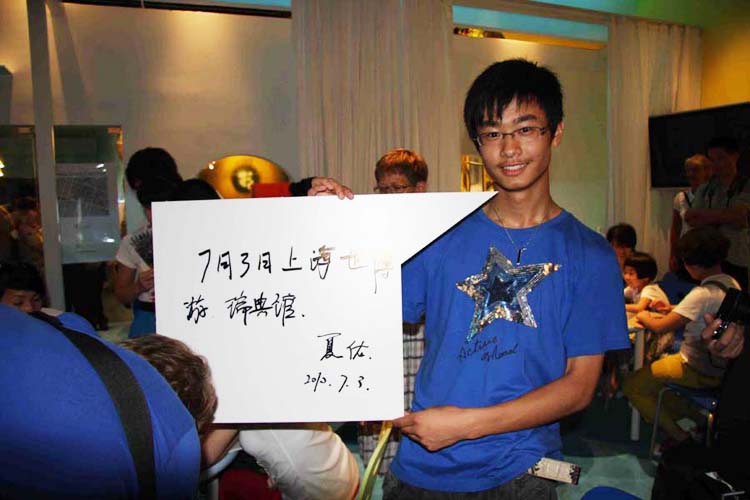 7月3日上海世博
游 瑞典馆.
夏佑.
2010.7.3.
Active
Mood